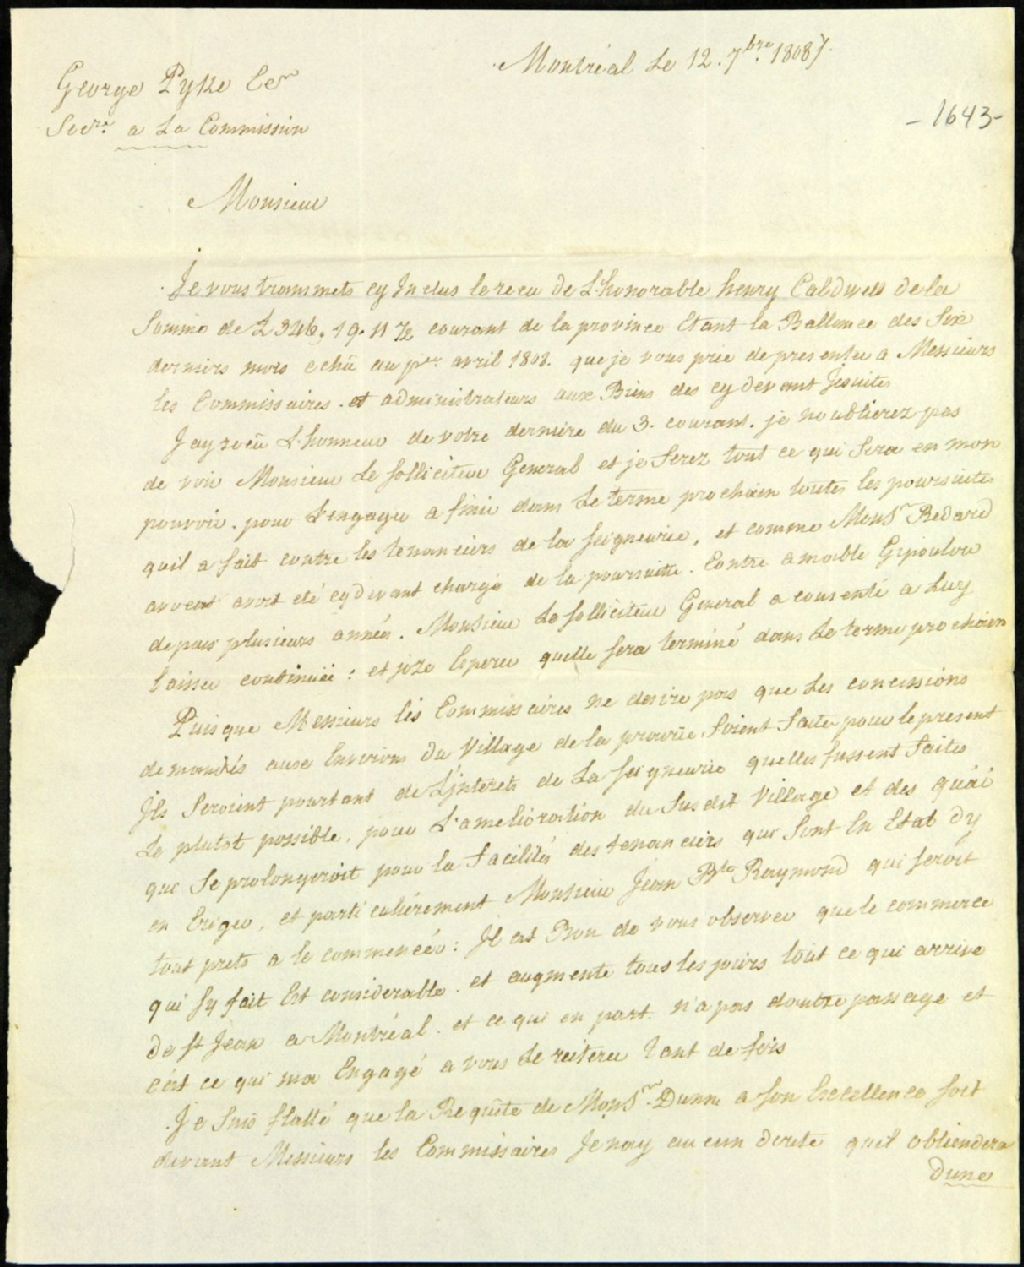 Montréal Le 12. 7bre. 1808
George Pyke Ecr
Secre. a La Commission
-1643-
Monsieur
Je vous transmets cy Inclus le recu de L'honorable henry Caldwell de la
Somme de £ 346, 19. 11 ½ courant de la province Etant la Ballence des Six
derniers mois echû au pr. avril 1808. que je vous prie de presenter a Messieurs
les Commissaires. et administrateurs aux Biens des cy devant Jesuites
J'ay recû L'honneur de votre derniere du 3. courant. je noublierez pas
de voir Monsieur Le Solliciteur General et je ferez tout ce qui Sera en mon
pouvoir. pour L'engager a finir dans Le terme prochain toutes les poursuites
quil a fait contre les tenanciers de la Seigneurie, et comme Monsr. Bedard
avocat avoit été cydevant chargé de la poursuite. Contre amable Gipoulou
depuis plusieurs année. Monsieur Le Solliciteur General a consenté a Luy
laisser continuée: et joze Esperer quelle sera terminé dans Le terme prochain
Puisque Messieurs les Commissaires ne desire pas que Les concessions
demandés aux Environs du Village de la prairie Soient faite pour le present
Ils Seroient pourtant de L'interets de La Seigneurie quelles fussent faites
Le plutot possible, pour L'amelioration du Susdit Village et des quai
que Se prolongeroit pour la Facilité des tenanciers qui Sont En Etat d'y
en Eriger, et particulierement Monsieur Jean Bte Raymond qui Seroit
tout prets a le commencée: Il est Bon de vous observer que le commerce
qui Sy fait Est considerable. et augmente tous les jours tout ce qui arrive
De St Jean a Montréal. et ce qui en part n'a pas dautre passage et
c'est ce qui ma Engagé a vous Le reiterer tant de fois
Je Suis flatté que la Requête de Monsr. Dunn a Son Excellence Soit
devant Messieurs les Commissaires Je nay aucun doute quil obtiendera
dunes